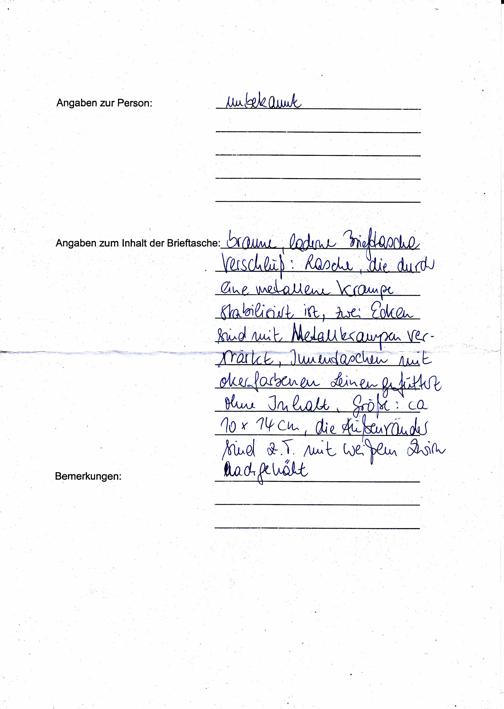 Angaben zur Person: unbekannt
Angaben zum Inhalt der Brieftasche: braune, lederne Brieftasche
Verschluß: Lasche, die durch
eine metallene Krampe
stabilisiert ist, zwei Ecken
sind mit Metallkrampen ver-
stärkt, Innentaschen mit
okerfarbenen Leinen gefüttert
ohne Inhalt, Größe: ca
10 x 14 cm, die Außenränder
sind z.T. mit weißem Zwirn
nachgenäht
Bemerkungen: